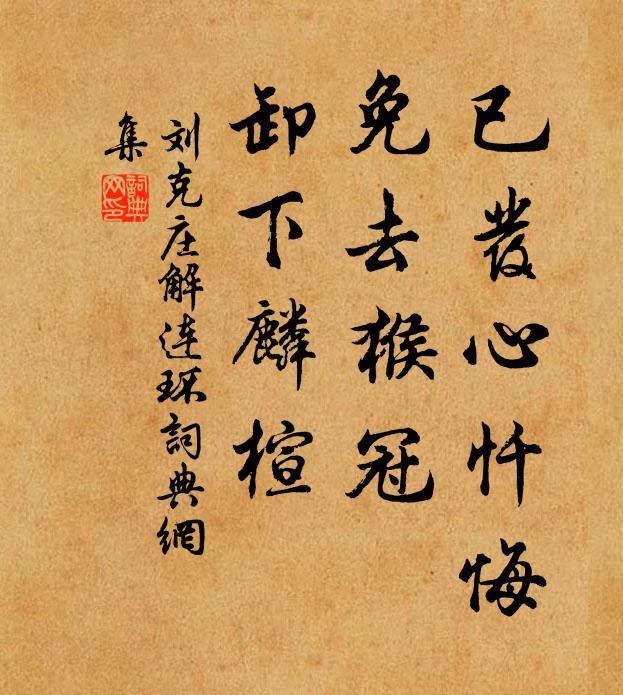 已發心忏悔
免去猴冠
卸下麟楦
刘克庄解连环詞典網
集
詞典网印